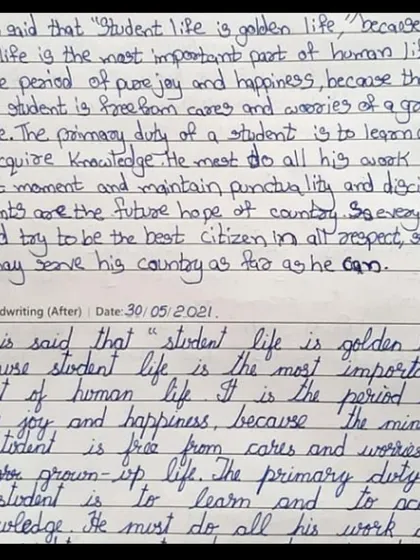 said that "Student life is golden life," because
life is the most important part of human li
e period of pure joy and happiness, because th
student is freefrom cares and woories of a go
e. The primary duty of a student is to learn
cquire Knowledge. He mest do all his work
t moment and maintain punctuality and disci
nts are the future hope of country. So every
d try to be the best citizen in all respect, s
may serve his country as far as he can.
dwriting (After) | Date: 30/05/2021.
is said that "student life is golden
use student life is the most importa
t of human life. It is the period
joy and happiness, because the min
tudent is free from cares and worries
grown-up life. The primary duty
student is to learn and to ac
wledge. He must do, all his work